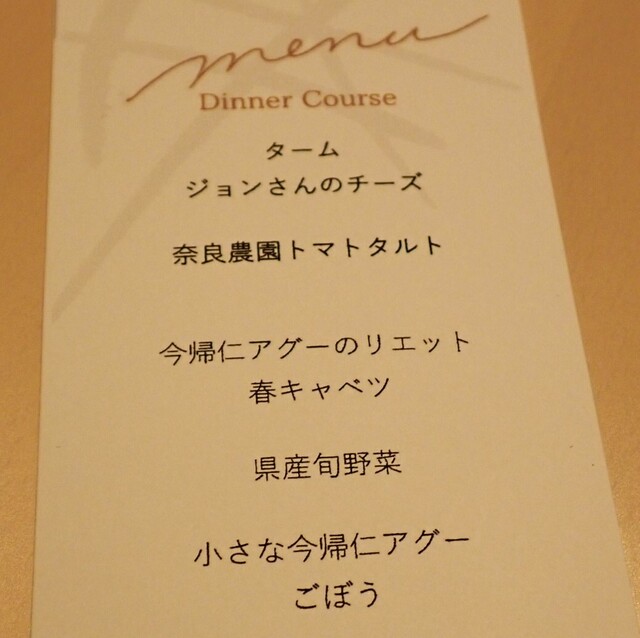 menu
Dinner Course
ターム
ジョンさんのチーズ
奈良農園トマトタルト
今帰仁アグーのリエット
春キャベツ
県産旬野菜
小さな今帰仁アグー
ごぼう